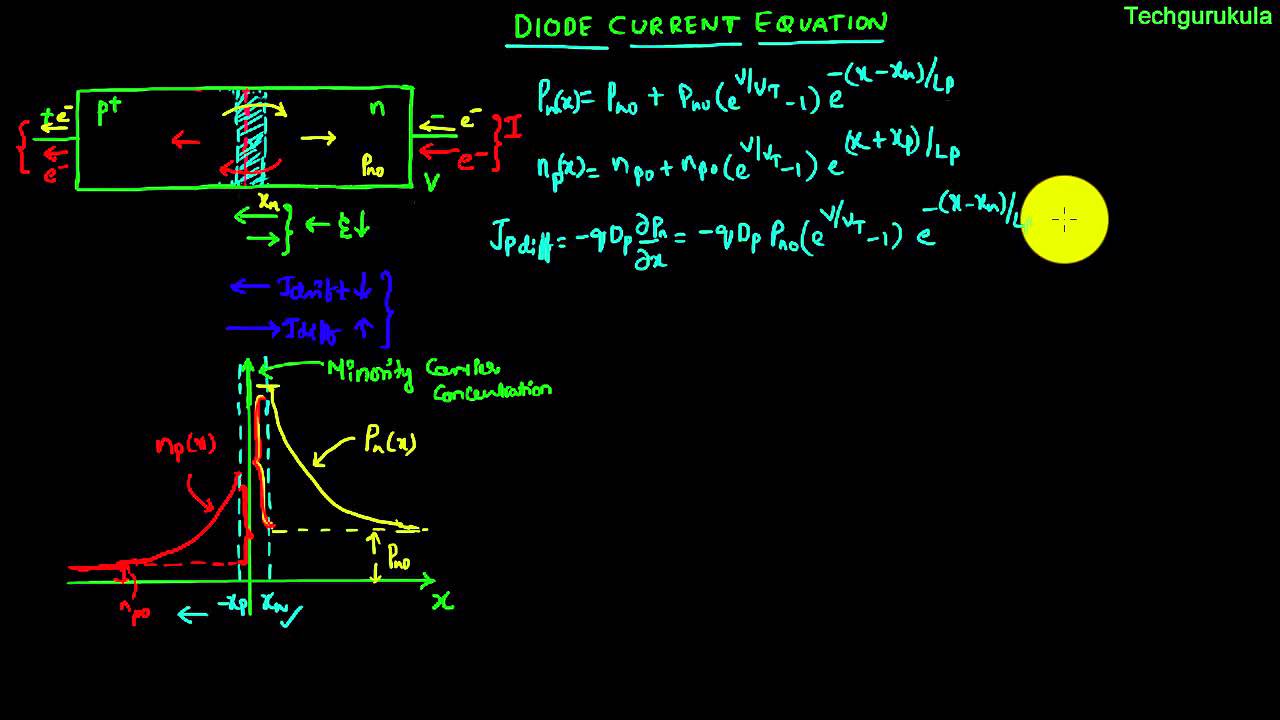 Techgurukula
DIODE CURRENT EQUATION
Pn(x) = Pno + Pno(e^V/VT -1) e^-(x-xn)/Lp
np(x) = npo + npo(e^V/VT -1) e^(x+xp)/Lp
Jp diff = -qDp ∂Pn/∂x = -qDp Pno(e^V/VT -1) e^-(x-xn)/Lp
p+ n
+ e- - e-
e- e- I
Pno
V
xn
ξ↓
Jdrift ↓
Jdiff ↑
Minority Carrier
Concentration
np(x) Pn(x)
Pno
npo -xp xn x